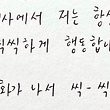 사에서 저는 항상
씩씩하게 행동합니
화가 나서 씩-씩